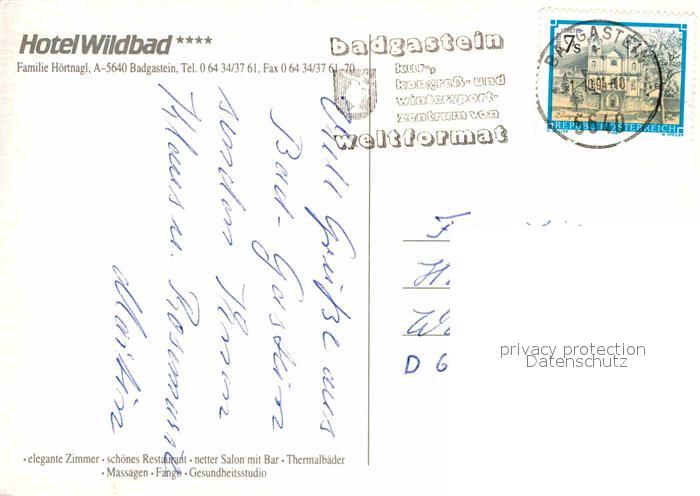 Hotel Wildbad ****
Familie Hörtnagl, A-5640 Badgastein, Tel. 0 64 34/37 61, Fax 0 64 34/37 61-70
badgastein
kur-,
kongreß- und
wintersport-
zentrum von
weltformat
7s
REPUBLIK ÖSTERREICH
BADGASTEIN
5640
Viele Grüße aus
Bad-Gastein
senden Ihnen
Klaus u. Rosemarie
Martin
F
H.
D 6
privacy protection
Datenschutz
• elegante Zimmer • schönes Restaurant • netter Salon mit Bar • Thermalbäder
• Massagen • Fango • Gesundheitsstudio